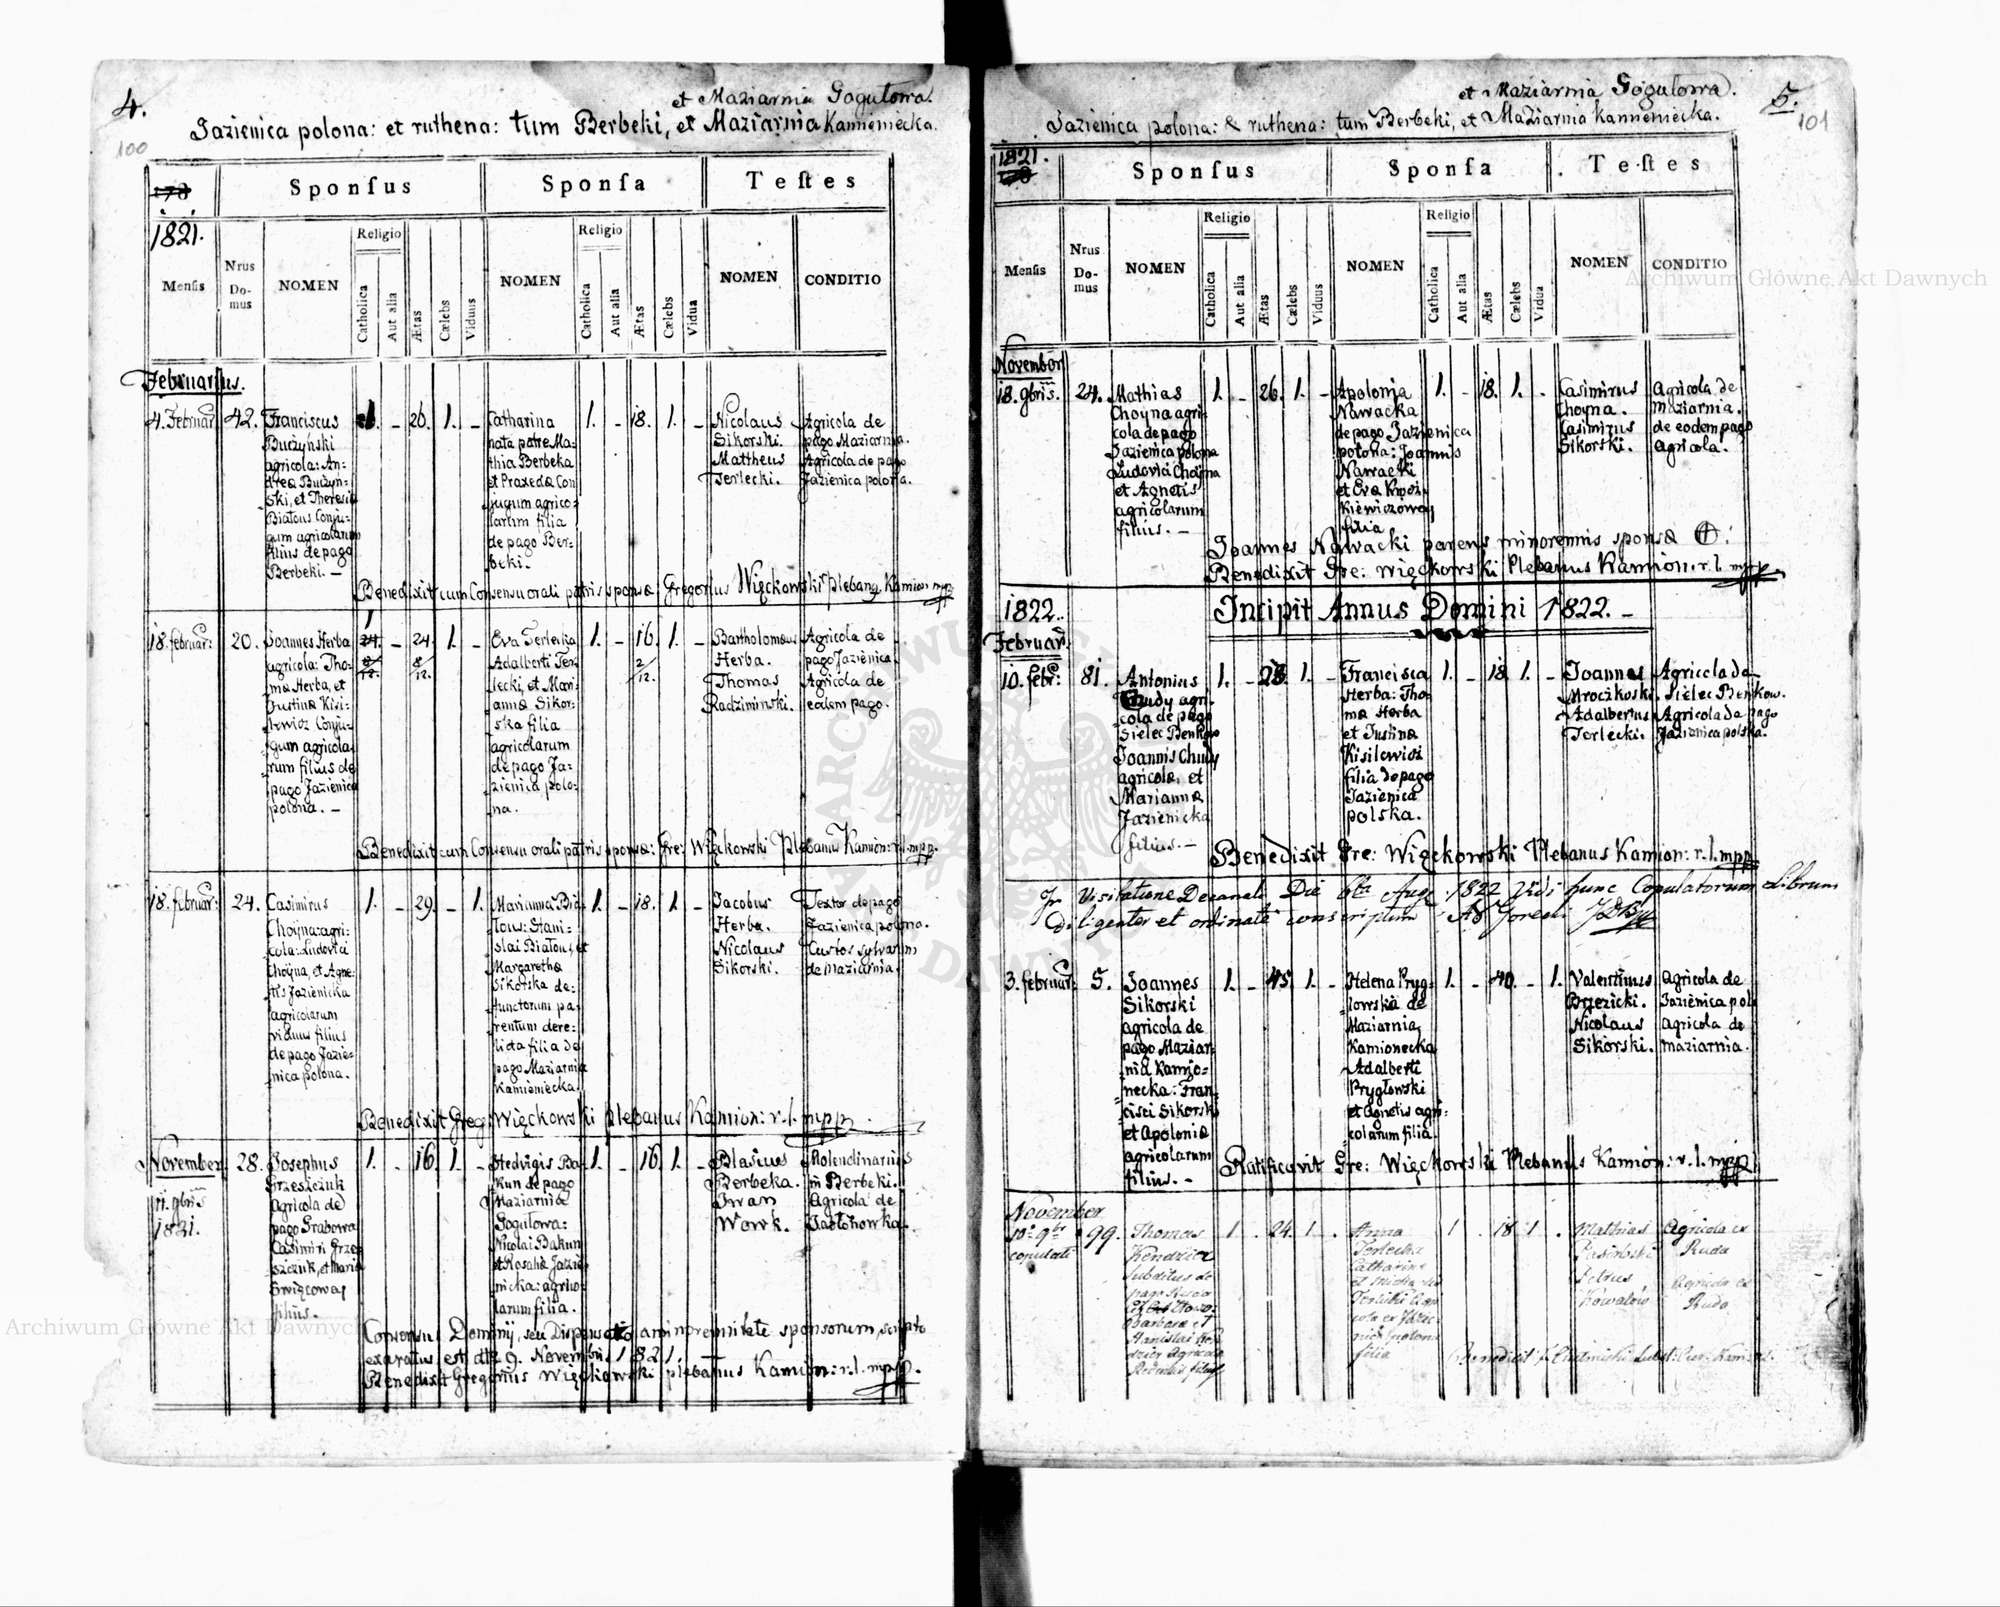 4.
100
et Maziarnia Gogulowa.
Jazienica polona: et ruthena: tum Berbeki, et Maziarnia Kamieniecka.
1821.
Sponſus
Sponſa
Teſtes
Menſis
Nrus Domus
NOMEN
Religio
Catholica
Aut alia
Ætas
Cælebs
Viduus
NOMEN
Religio
Catholica
Aut alia
Ætas
Cælebs
Vidua
NOMEN
CONDITIO
Februarius.
4. Februar
42.
Franciscus
Buczynski
agricola: An=
dreæ Buczyn=
ski, et Theresiæ
Białous Conju=
gum agricolarum
filius de pago
Berbeki. —
1. - 26. 1. -
Catharina
nata patre Ma=
thia Berbeka
et Praxeda Con
jugum agrico=
larum filia
de pago Ber=
beki.
1. - 18. 1. -
Nicolaus
Sikorski.
Mattheus
Terlecki.
Agricola de
pago Maziarnia.
Agricola de pago
Jazienica polona.
Benedixit cum Consensu orali patris sponsæ Gregorius Więckowski Plebang Kamion mpp
18. februar:
20.
Joannes Herba
agricola: Tho=
mæ Herba, et
Justinæ Kisi=
lewicz Conju=
gum agricola=
rum filius de
pago Jazienica
polona. —
1 - 24. 8/12. 1. -
Eva Terlecka
Adalberti Ter=
lecki, et Mari=
annæ Sikor=
ska filia
agricolarum
de pago Ja=
zienica polo=
na.
1. - 16. 2/12. 1. -
Bartholomæus
Herba.
Thomas
Radziminski.
Agricola de
pago Jazienica.
Agricola de
eodem pago.
Benedixit cum Consensu orali patris sponsæ: Gre: Więckowski Plebanus Kamion: r.l. mpp.
18. februar:
24.
Casimirus
Choyna: agri=
cola: Ludovici
Choyna, et Agne=
tis Jazienicka
agricolarum
viduus filius
de pago Jazie=
nica polona.
1. - 29. - 1.
Marianna Bia=
lous: Stani=
slai Białous, et
Margarethæ
Sikorska de=
functorum pa=
rentum dere=
licta filia de
pago Maziarnia
Kamieniecka.
1. - 18. 1. -
Jacobus
Herba.
Nicolaus
Sikorski.
Textor de pago
Jazienica polona.
Custos sylvarum
de Maziarnia.
Benedixit Greg: Więckowski plebanus Kamion: r. l. mpp.
November.
11. 9bris
1821.
28.
Josephus
Grzeszczuk
Agricola de
pago Grabowa
Casimiri Grze=
szczuk, et Mariæ
Swięcowey
filius.
1. - 16. 1. -
Hedvigis Ba=
kun de pago
Maziarnia
Gogulowa:
Nicolai Bakun
et Rosaliæ Jazie=
nicka: agrico=
larum filia.
1. - 16. 1. -
Blasius
Berbeka.
Iwan
Wowk.
Molendinarius
in Berbeki.
Agricola de
Jabłonowka.
Consensus Dominij, seu Dispensatio a minorennitate sponsorum, scripto
exaratus est dto 9. Novembris 1821.
Benedixit Gregorius Więckowski plebanus Kamion: r. l. mpp.
et Maziarnia Gogulowa.
5.
101
Jazienica polona: & ruthena: tum Berbeki, et Maziarnia Kamieniecka.
1821.
Sponſus
Sponſa
Teſtes
Menſis
Nrus Domus
NOMEN
Religio
Catholica
Aut alia
Ætas
Cælebs
Viduus
NOMEN
Religio
Catholica
Aut alia
Ætas
Cælebs
Vidua
NOMEN
CONDITIO
November
18. 9bris.
24.
Mathias
Choyna agri=
cola de pago
Jazienica polona
Ludovici Choyna
et Agnetis
agricolarum
filius. —
1. - 26. 1. -
Apolonia
Nawacka
de pago Jazienica
polona: Joannis
Nawacki
et Evæ Kwoz=
kiewiczowey
filia
1. - 18. 1. -
Casimirus
Choyna.
Casimirus
Sikorski.
Agricola de
Maziarnia.
de eodem pago
agricola.
Joannes Nawacki parens minorennis sponsæ
Benedixit Gre: Więckowski Plebanus Kamion: r. l. mpp.
1822.
Incipit Annus Domini 1822. —
Februar.
10. febr:
81.
Antonius
Chudy agri=
cola de pago
Sielec Benkow
Joannis Chudy
agricolæ, et
Mariannæ
Jazienicka
filius. —
1. - 28. 1. -
Francisca
Herba: Tho=
mæ Herba
et Justinæ
Kisilewicz
filia de pago
Jazienica
polska.
1. - 18. 1. -
Joannes
Mroczkoski.
Adalbertus
Terlecki.
Agricola de
Sielec Benkow.
Agricola de pago
Jazienica polska.
Benedixit Gre: Więckowski Plebanus Kamion: r. l. mpp.
In Visitatione Decanali Die 6ta Aug. 1822 Vidi hunc Copulatorum Librum
diligenter et ordinate conscriptum
3. februar:
5.
Joannes
Sikorski
agricola de
pago Maziar=
nia Kamio=
necka: Fran=
cisci Sikorski
et Apoloniæ
agricolarum
filius. —
1. - 45. 1. -
Helena Pryg=
lowska de
Maziarnia
Kamionecka
Adalberti
Pryglowski
et Agnetis agri=
colarum filia.
1. - 40. - 1.
Valentinus
Brzezicki.
Nicolaus
Sikorski.
Agricola de
Jazienica pol.
Agricola de
Maziarnia.
Ratificavit Gre: Więckowski Plebanus Kamion: r. l. mpp.
November
10 9br
copulati
99.
Thomas
Kendzier
subditus de
pago Ruda
Barbara et
Stanislai Ken
dzier Agricola
1 . 24. 1 .
Anna
Terlecka
Catharinæ
et Michaelis
Terlecki Agri
cola ex Jazie
nica polona
filia
1 . 18 1 .
Mathias
Petrus
Kowalow
Agricola ex
Ruda
Agricola ex
Ruda
Archiwum Główne Akt Dawnych
Archiwum Główne Akt Dawnych
ARCHIWUM GŁÓWNE AKT DAWNYCH